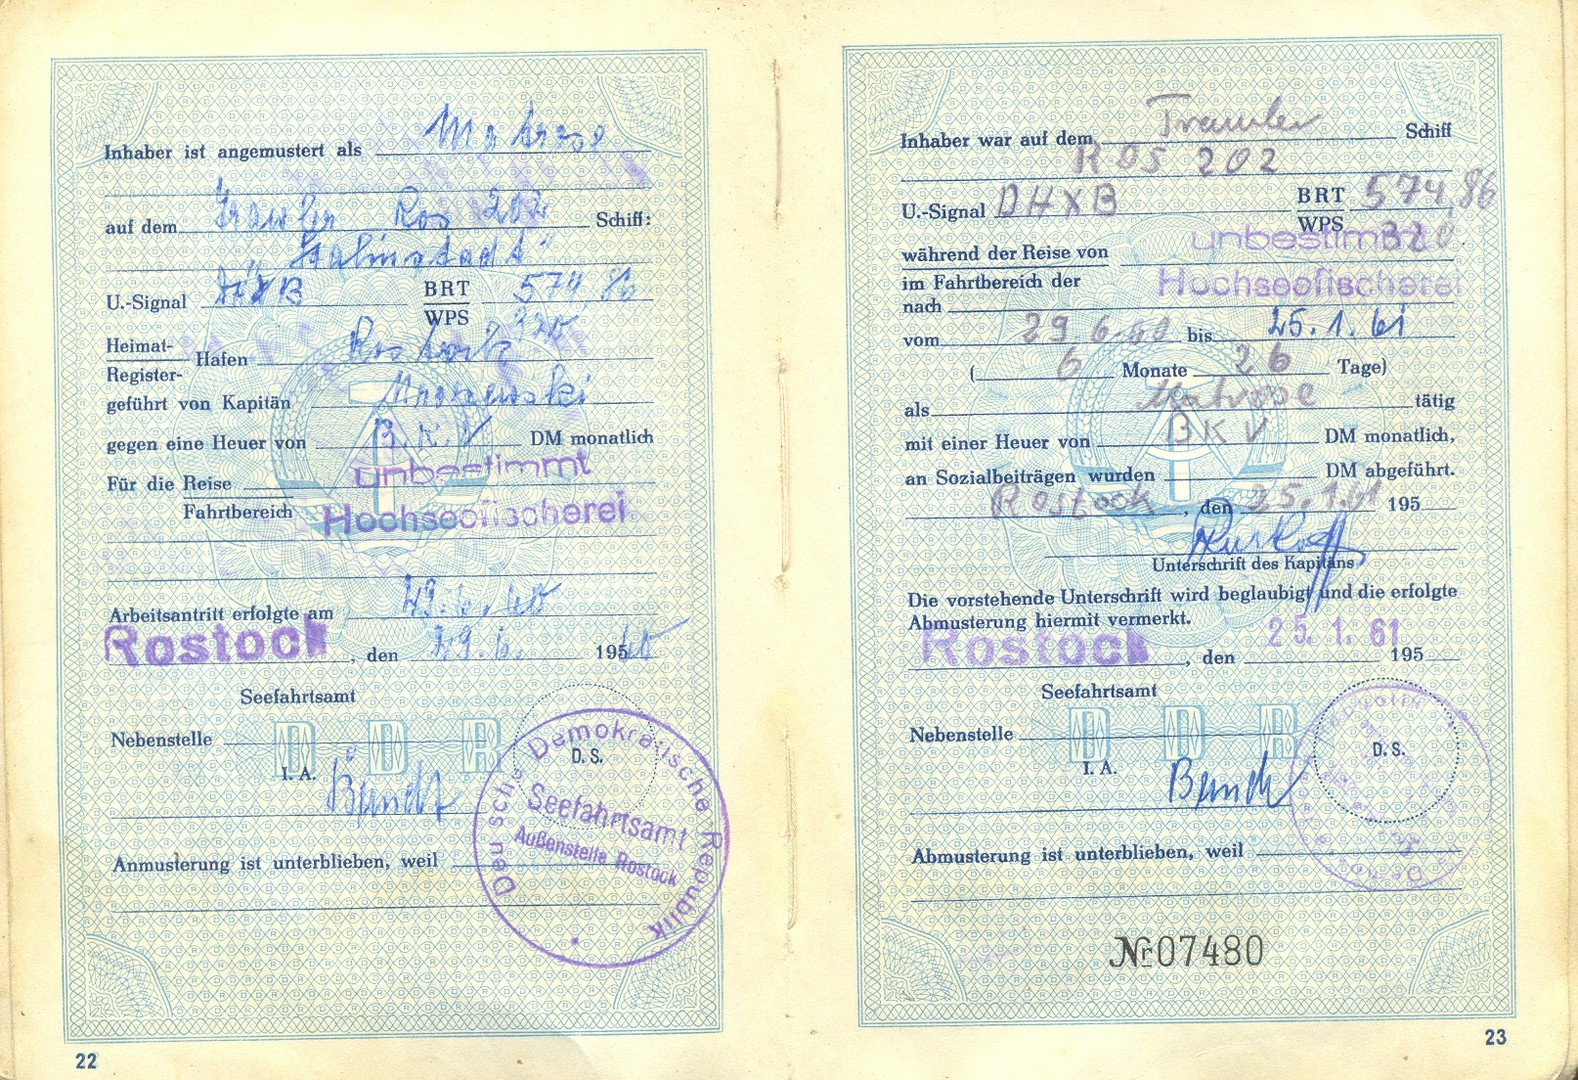 Inhaber ist angemustert als Matrose
auf dem Trawler Ros 202 Schiff:
"Stalinstadt"
U.-Signal DHXB BRT 574,86
WPS 320
Heimat-
Register- Hafen Rostock
geführt von Kapitän
gegen eine Heuer von B.K.V DM monatlich
Für die Reise unbestimmt
Fahrtbereich Hochseefischerei
Arbeitsantritt erfolgte am 29.6.60
Rostock, den 29.6. 1960
Seefahrtsamt
Nebenstelle
D D R
D. S.
I. A.
Deutsche Demokratische Republik
Seefahrtsamt
Außenstelle Rostock
Anmusterung ist unterblieben, weil
22
Inhaber war auf dem Trawler Schiff
ROS 202
U.-Signal DHXB BRT 574,86
WPS 320
während der Reise von unbestimmt
im Fahrtbereich der Hochseefischerei
nach
vom 29.6.60 bis 25.1.61
(6 Monate 26 Tage)
als Matrose tätig
mit einer Heuer von BKV DM monatlich,
an Sozialbeiträgen wurden DM abgeführt.
Rostock, den 25.1.61 195
Unterschrift des Kapitäns
Die vorstehende Unterschrift wird beglaubigt und die erfolgte
Abmusterung hiermit vermerkt.
Rostock, den 25.1.61 195
Seefahrtsamt
Nebenstelle
D D R
D. S.
I. A.
Abmusterung ist unterblieben, weil
Nr 07480
23